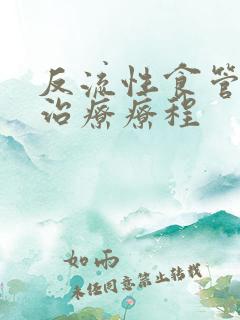 反流性食管
治療療程
如雨
未经同意禁止转载